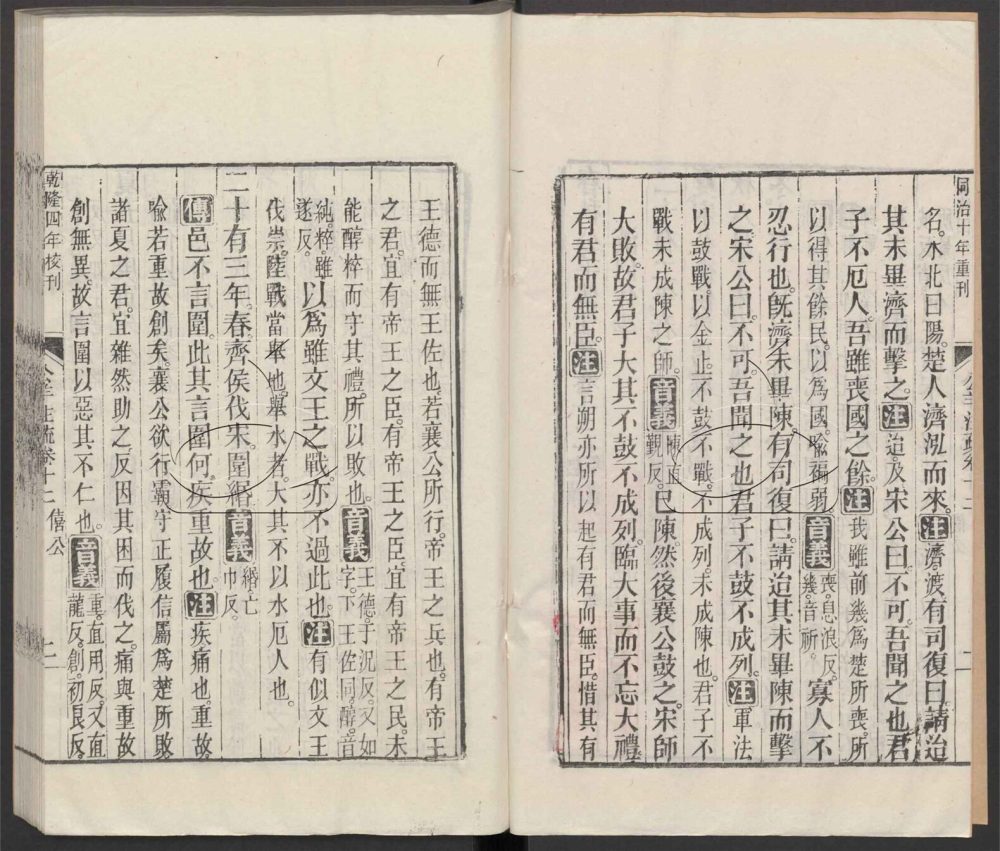 同治十年重刊
名。水北曰陽。楚人濟泓而來。注濟。渡。有司復曰。請迨
其未畢濟而擊之。注迨。及。宋公曰。不可。吾聞之也。君
子不厄人。吾雖喪國之餘。注我雖前幾爲楚所喪。所
以得其餘民。以爲國。喻褊弱。音義喪。息浪反。幾。音祈。寡人不
忍行也。既濟。未畢陳。有司復曰。請迨其未畢陳而擊
之。宋公曰。不可。吾聞之也。君子不鼓不成列。注軍法
以鼓戰。以金止。不鼓不戰。不成列。未成陳也。君子不
戰未成陳之師。音義陳。直覲反。已陳。然後襄公鼓之。宋師
大敗。故君子大其不鼓不成列。臨大事而不忘大禮。
有君而無臣。注言朔亦所以起有君而無臣。惜其有
王德而無王佐也。若襄公所行。帝王之兵也。有帝王
之君。宜有帝王之臣。有帝王之臣。宜有帝王之民。未
能醇粹而守其禮。所以敗也。音義王德。于況反。又如字。下王佐同。醇。音
純。粹。雖遂反。以爲雖文王之戰。亦不過此也。注有似文王
伐崇。陸戰當舉地。舉水者。大其不以水厄人也。
二十有三年。春。齊侯伐宋。圍緡。音義緡。亡巾反。
傳邑不言圍。此其言圍何。疾重故也。注疾。痛也。重故。
喻若重故創矣。襄公欲行霸。守正履信。屬爲楚所敗。
諸夏之君。宜雜然助之。反因其困而伐之。痛與重故
創無異。故言圍以惡其不仁也。音義重。直用反。又直龍反。創。初良反。
乾隆四年校刊
僖公